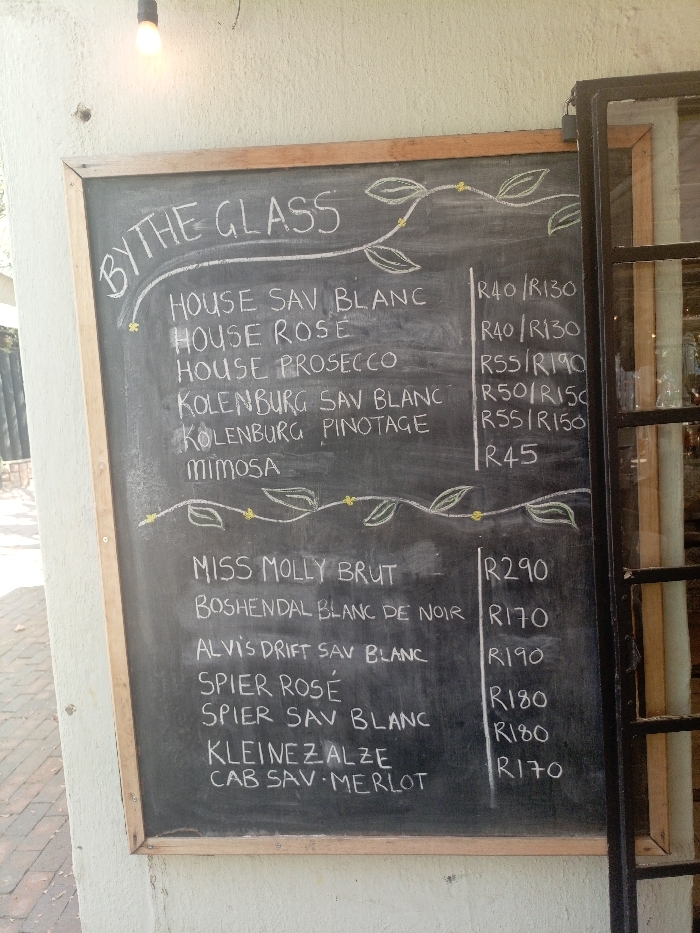 BY THE GLASS
HOUSE SAV BLANC R40/R130
HOUSE ROSÉ R40/R130
HOUSE PROSECCO R55/R190
KOLENBURG SAV BLANC R50/R150
KOLENBURG PINOTAGE R55/R150
MIMOSA R45
MISS MOLLY BRUT R290
BOSHENDAL BLANC DE NOIR R170
ALVIS DRIFT SAV BLANC R190
SPIER ROSÉ R180
SPIER SAV BLANC R180
KLEINEZALZE R170
CAB SAV·MERLOT